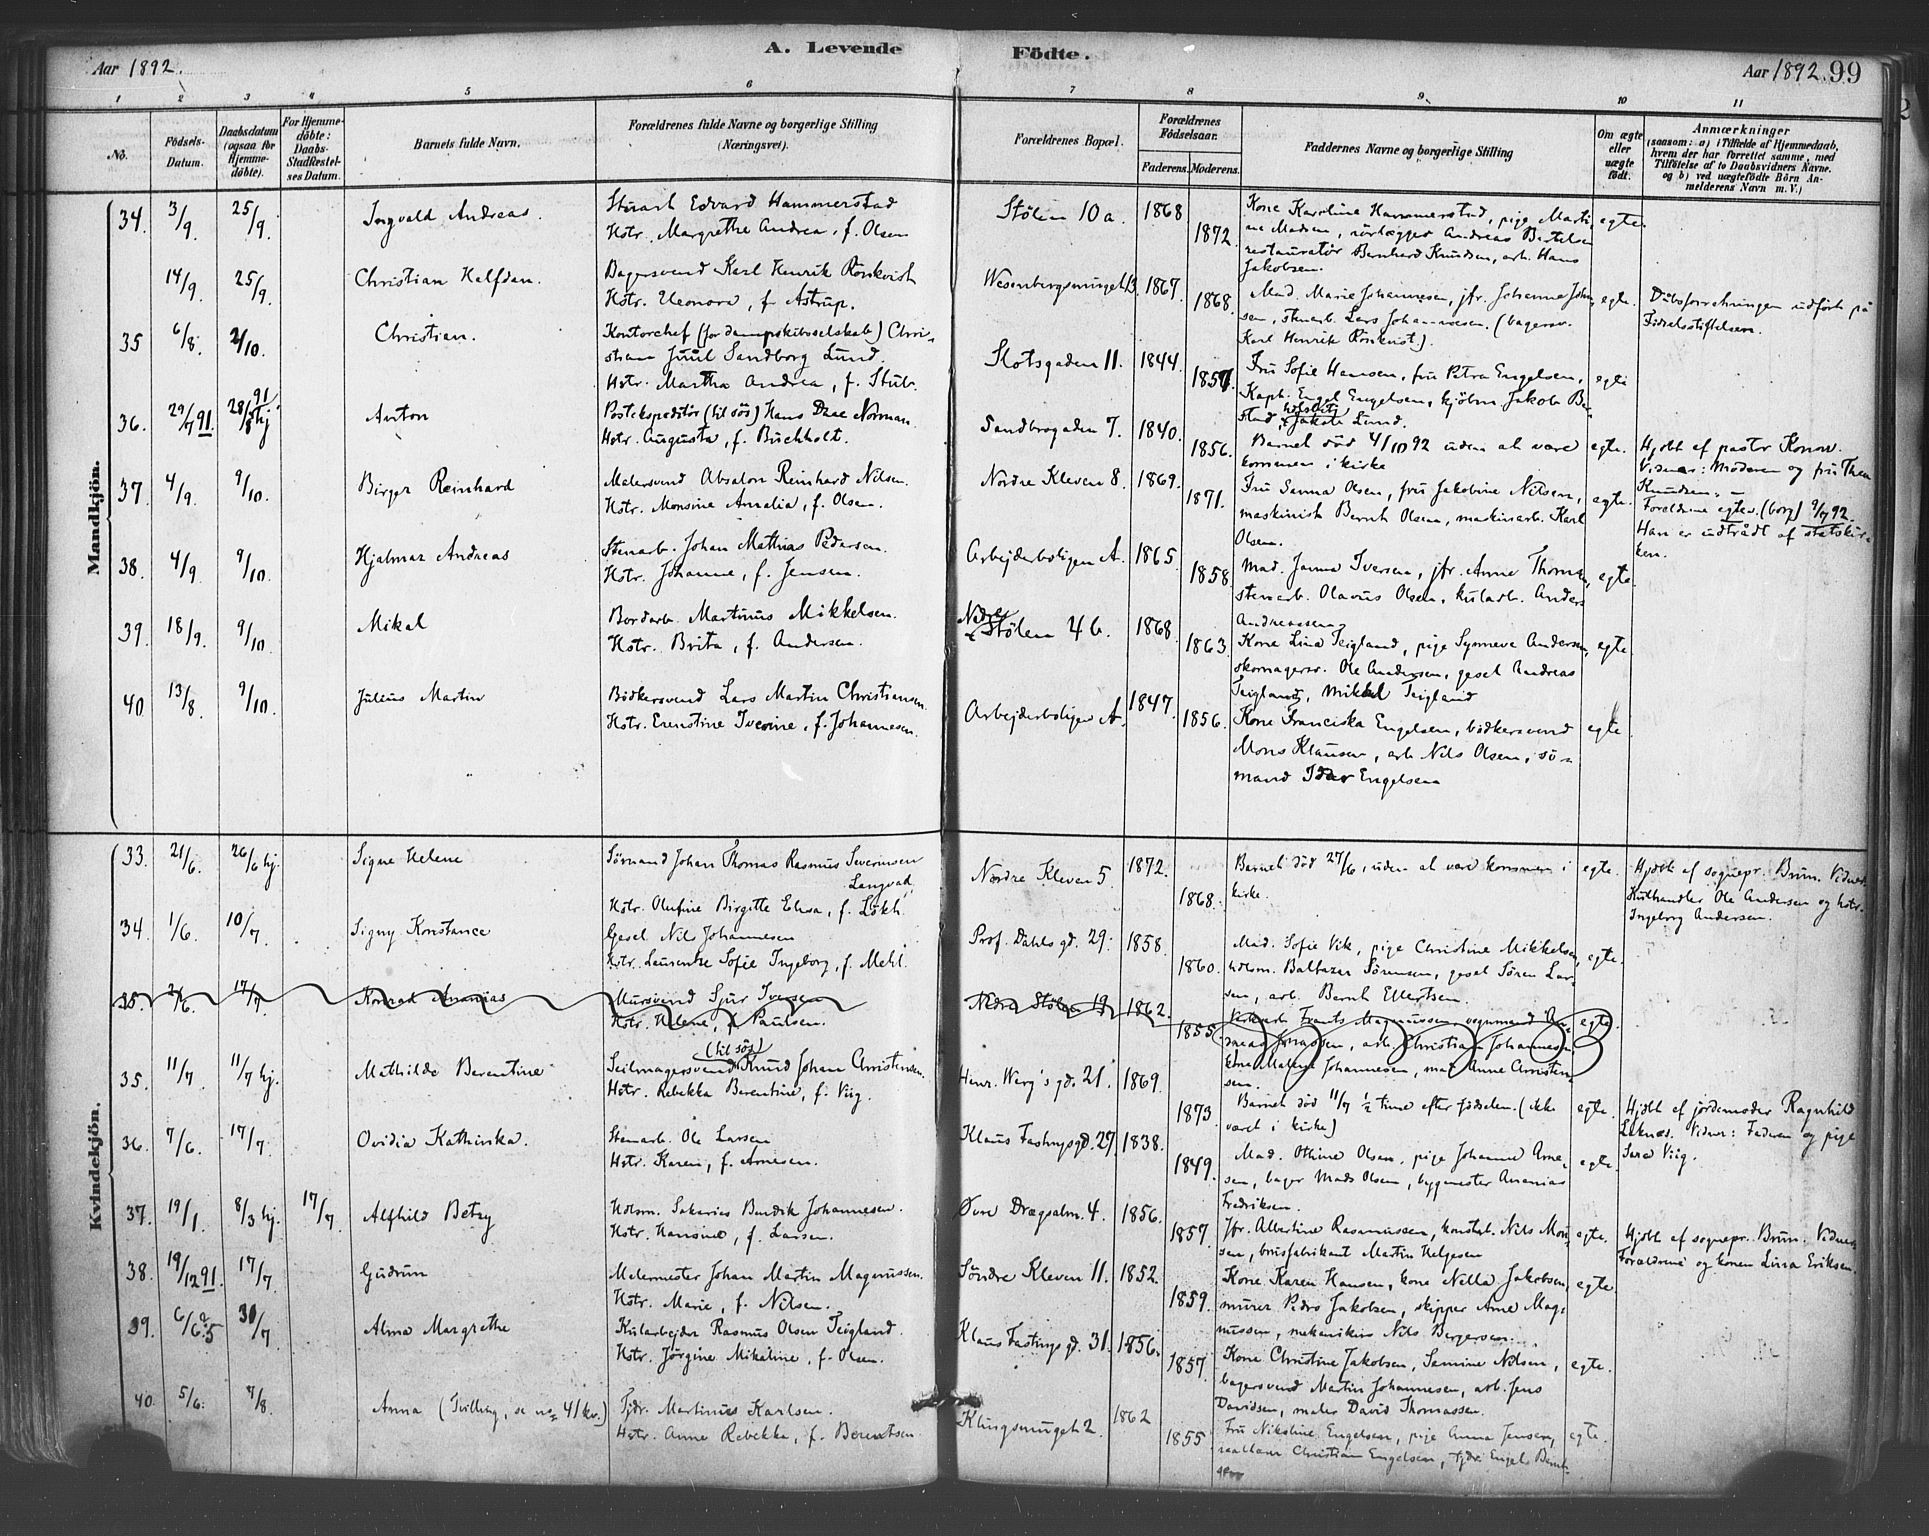 A. Levende Födte.
Aar 1892.
Aar 1892. 99
1 2 3 4 5 6 7 8 9 10 11
No.
Födsels-
Datum.
Daabsdatum
(ogsaa för
Hjemme-
döbte).
For Hjemme-
döbte:
Daabs-
Stadfæstel-
ses Datum.
Barnets fulde Navn.
Forældrenes fulde Navne og borgerlige Stilling
(Næringsvei).
Forældrenes Bopæl.
Forældrenes
Födselsaar.
Faderens. Moderens.
Faddernes Navne og borgerlige Stilling
Om ægte
eller
uægte
födt.
Anmærkninger
(saasom: a) i Tilfælde af Hjemmedaab,
hvem der har forrettet samme, med
Tilföielse af to Daabsvidners Navne.
og b) ved uægtefödte Börn An-
melderens Navn m. V.)
Mandkjön.
34. 3/9. 25/9. Ingvald Andreas.
Stuart Edvard Hammerstad
Hstr. Margrethe Andrea, f. Olsen
Stölen 10 a. 1868 1872.
Kone Karoline Hammerstad, pige Marti-
ne Madsen, rörlægger Andreas Bertelsen
restauratör Bernhard Knudsen, arb. Hans
Jakobsen.
egte.
14/9. 25/9. Christian Halfdan.
Bagersvend Karl Henrik Rönkvist
Hstr. Eleonora, f. Astrup.
1867. 1868.
Mad. Marie Johannesen, jfr. Johanne John-
sen, stenarb. Lars Johannesen. (bagersv.
Karl Henrik Rönkvist).
egte.
Dåbsforretningen udfört på
Födselsstiftelsen.
35 6/8. 2/10. Christian.
Kontorchef (for dampskibsselskab) Chri-
stian Juul Sandborg Lund.
Hstr. Martha Andrea, f. Stub.
Slotsgaden 11. 1844. 1857.
Fru Sofie Hansen, fru Petra Engelsen,
Kapt. Engel Engelsen, kjöbm Jakob Ber-
stad, Jakob Lund.
egte
36. 29/7 91. 28/8 91 hj. Anton
Postekspeditör (til sös) Hans Daae Norman.
Hstr. Augusta, f. Buchholt.
Sandbrogaden 7. 1840. 1856.
Barnet död 4/10 92 uden at være
kommen i kirke
egte.
Hjdbt af pastor Konow.
Vidner: Moderen og fru Thea
Knudsen. –
Forældrene egtev. (borg) 9/7 92.
Han er udtrådt af statskir-
ken.
37 4/9. 9/10. Birger Reinhard
Malersvend Absalon Reinhard Nilsen.
Hstr. Monsine Amalia, f. Olsen.
Nordre Kleven 8. 1869. 1871.
Fru Sanna Olsen, fru Jakobine Nilsen,
maskinist Bernt Olsen, maskinarb. Karl
Olsen.
egte.
38. 4/9 9/10. Hjalmar Andreas
Stenarb. Johan Mathias Pedersen.
Hstr. Johanne, f. Jensen.
Arbejderboligen A. 1865. 1858.
Mad. Janna Iversen, jfr. Anne Thomsen,
stenarb. Olavus Olsen, kularb. Anders
Andreassen.
egte.
39. 18/9. 9/10. Mikal
Bordarb. Martinus Mikkelsen.
Hstr. Brita, f. Andersen.
Nedre Stölen 4 b. 1868. 1863.
Kone Lina Teigland, pige Synneve Andersen,
skomagersv. Ole Andersen, gesel Andreas
Teigland, Mikkel Teigland
egte.
40 13/8. 9/10. Julius Martin
Bödkersvend Lars Martin Christiansen.
Hstr. Ernstine Iverine, f. Johannesen.
Arbejderboligen A. 1847. 1856.
Kone Franciska Engelsen, bödkersvend
Mons Klausen, arb Nils Olsen, sö-
mand Engelsen
egte.
Kvindekjön.
33. 21/6. 26/6 hj. Signe Helene
Sömand Johan Thomas Rasmus Severinsen
Langvad,
Hstr. Olufine Birgitte Elisa, f. Lökh.
Nordre Kleven 5. 1872. 1868.
Barnet död 27/6, uden at være kommen i
kirke.
egte.
Hjdbt af sognepr. Brun. Vidner:
Kulhandler Ole Andersen og hstr.
Ingeborg Andersen.
34. 1/6. 10/7. Signy Konstance
Gesel Nils Johannesen
Hstr. Laurentze Sofie Ingeborg, f. Mehl.
Prof. Dahls gd. 29. 1858. 1860.
Mad. Sofie Vik, pige Christine Mikkelsen,
Baltazar Sörensen, gesel Sören Lar-
sen, arb. Bernt Ellertsen.
egte.
35. 2/6. 17/7. Konrad Ananias
Mursvend Sjur Iversen
Hstr. Helene, f. Paulsen.
Nedre Stölen 19. 1862. 1855.
Frants Magnussen, vognmand
Jonassen, arb. Christian Johannesen
Johannesen, mad Anne Christen-
sen.
egte.
35. 11/7. 11/7 hj. Mathilde Berentine
Seilmagersvend (til sös) Knud Johan Christensen.
Hstr. Rebekka Berentine, f. Viig.
Henr. Werg's gd. 21. 1869. 1873.
Barnet död 11/7 1/2 time efter födselen. (ikke
været i kirke)
egte.
Hjdbt af jordemoder Ragnhild
Vidner: Faderen og pige
Sara Viig.
36. 7/6. 17/7. Ovidia Kathinka.
Stenarb. Ole Larsen
Hstr. Karen, f. Arnesen.
Klaus Fastingsgd. 27. 1838. 1849.
Mad. Othine Olsen, pige Johanne Arne-
sen, bager Mads Olsen, bygmester Ananias
Fredriksen.
egte.
37. 19/1. 8/3 hj. 17/7. Alfhild Betzy
Sakarias Johannesen.
Hstr. Hansine, f. Larsen.
Övre Drægsalm. 4. 1856. 1857.
Jfr. Albertine Rasmussen, konstab. Nils Mon-
sen, brusfabrikant Martin Helgesen
egte.
Hjdbt af sognepr. Brun. Vidner:
Forældrene og konen Lina Eriksen.
38. 19/12 91. 17/7. Gudrun
Malermester Johan Martin Magnussen.
Hstr. Marie, f. Nilsen.
Söndre Kleven 11. 1852. 1859.
Kone Karen Hansen, kone Nella Jakobsen,
murer Pedro Jakobsen, skipper Arne Mag-
nussen, mekanikus Nils Bergersen.
egte
39. 30/7. Alma Margrethe
Kularbejder Rasmus Olsen Teigland.
Hstr. Jörgine Mikaline, f. Olsen.
Klaus Fastingsgd. 31. 1856. 1857.
Kone Christine Jakobsen, Samine Nilsen,
bagersvend Martin Johannesen, arb. Jens
Davidsen, maler David Thomassen.
egte.
40. 5/6. 7/8. Anna (Tvilling, se no 41 kv.)
Tjdr. Martinus Karlsen.
Hstr. Anne Rebekka, f. Berentsen
Klingsmuget 2. 1862 1855
Fru Nikoline Engelsen, pige Anna Jensen,
Christian Engelsen,
egte.